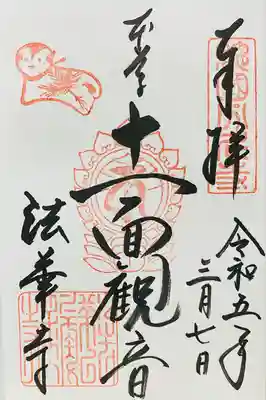 奉拝
令和五年
三月七日
本尊
十一面観音
法華寺